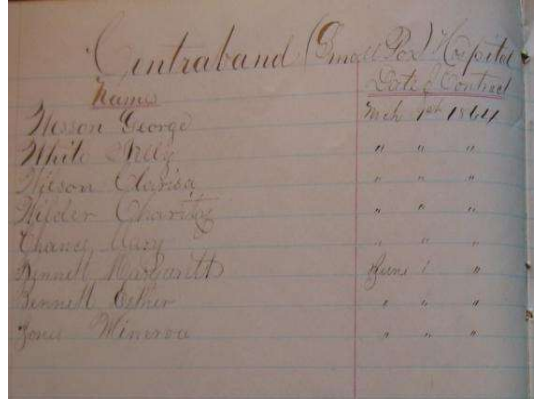 Contraband (Small Pox) Hospital
Names Date of Contract
Wesson George Mch 1st 1864
White Milly " " "
Wilson Clarisa " " "
Wilder Charity " " "
Chance Mary " " "
Bennett Margarett June 1 "
Bennett Esther " " "
Jones Minerva " " "